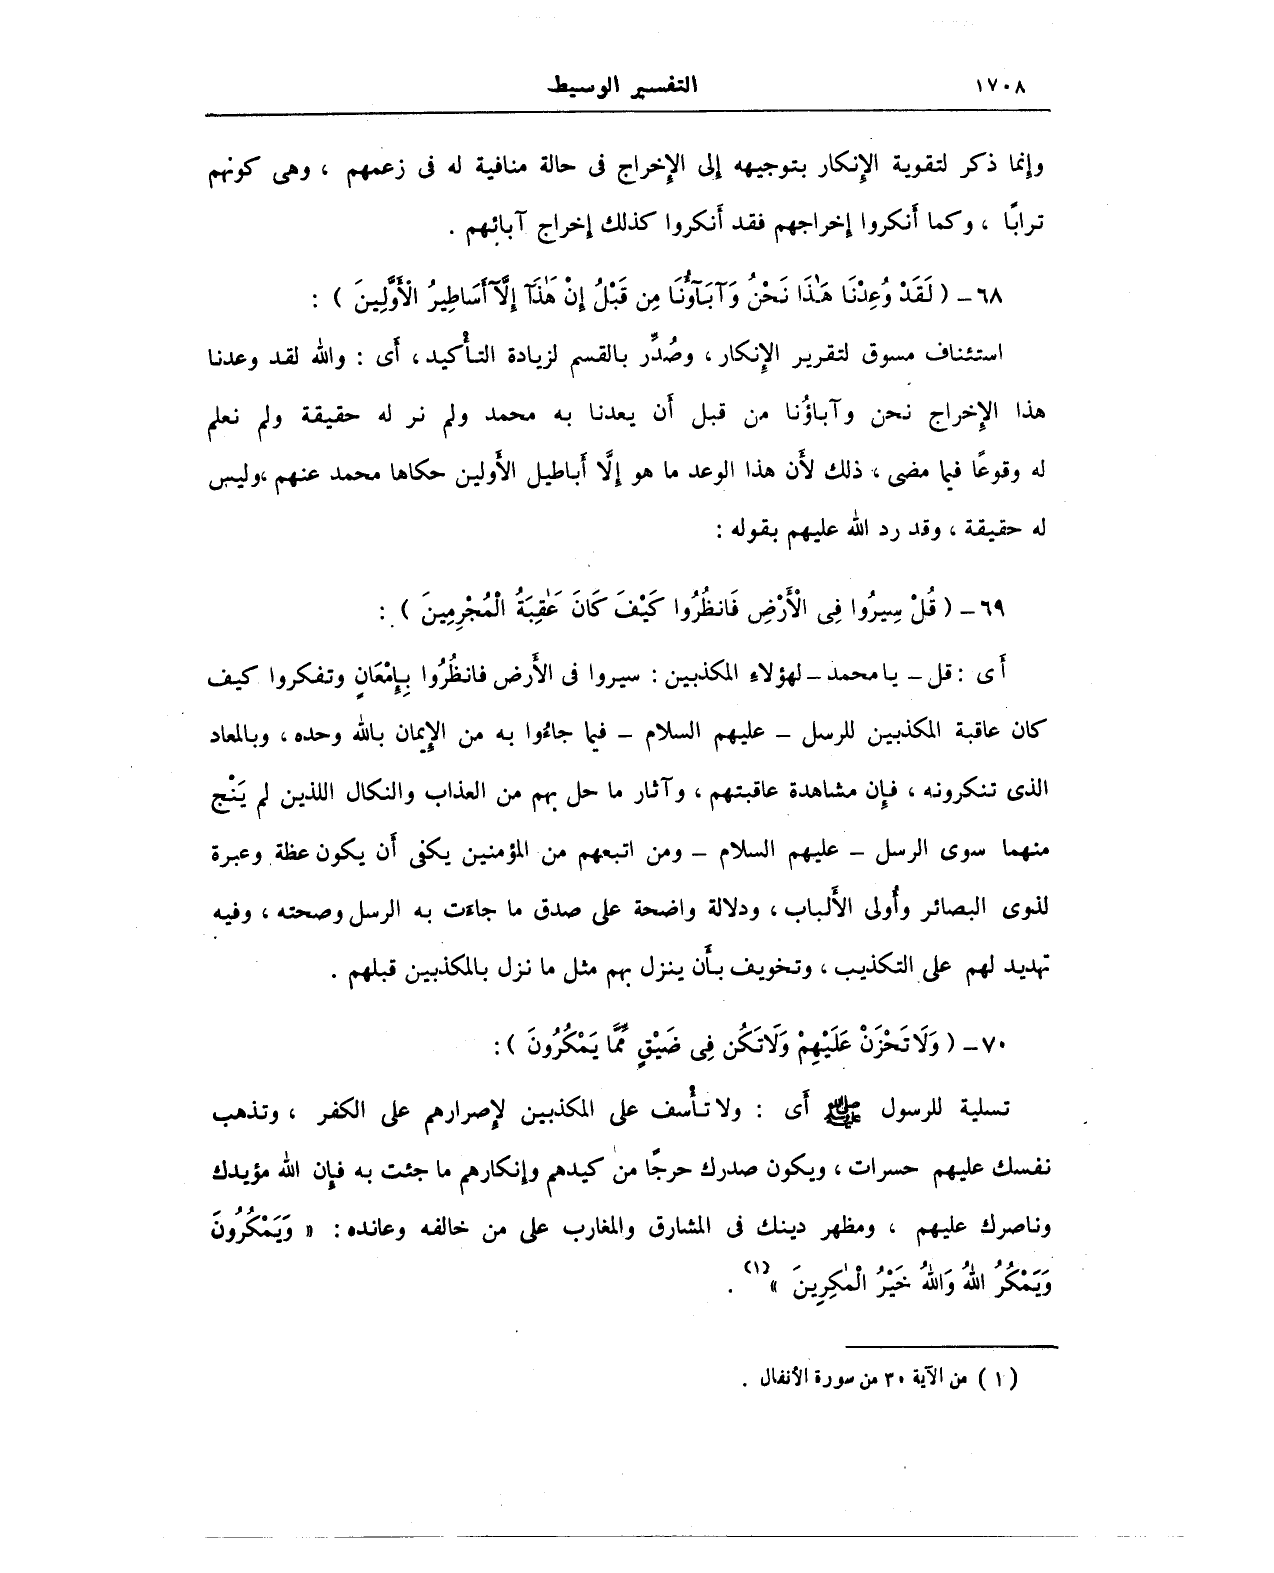 ١٧٠٨ التفسير الوسيط
وإنما ذكر لتقوية الإنكار بتوجيهه إلى الإخراج فى حالة منافية له فى زعمهم ، وهى كونهم
ترابًا ، وكما أنكروا إخراجهم فقد أنكروا كذلك إخراج آبائهم .
٦٨ – ( لَقَدْ وُعِدْنَا هَٰذَا نَحْنُ وَآبَآؤُنَا مِن قَبْلُ إِنْ هَٰذَآ إِلَّآ أَسَاطِيرُ الْأَوَّلِينَ ) :
استئناف مسوق لتقرير الإنكار ، وصُدِّر بالقسم لزيادة التأْكيد ، أَى : والله لقد وعدنا
هذا الإخراج نحن وآباؤُنا من قبل أَن يعدنا به محمد ولم نر له حقيقة ولم نعلم
له وقوعًا فيما مضى ، ذلك لأَن هذا الوعد ما هو إلَّا أَباطيل الأَولين حكاها محمد عنهم ،وليس
له حقيقة ، وقد رد الله عليهم بقوله :
٦٩ – ( قُلْ سِيرُوا فِى الْأَرْضِ فَانظُرُوا كَيْفَ كَانَ عَٰقِبَةُ الْمُجْرِمِينَ ) :
أَى : قل – يا محمد – لهؤلاءِ المكذبين : سيروا فى الأَرض فانظُرُوا بِإِمْعَانٍ وتفكروا كيف
كان عاقبة المكذبين للرسل – عليهم السلام – فيما جاءُوا به من الإِيمان بالله وحده ، وبالمعاد
الذى تنكرونه ، فإِن مشاهدة عاقبتهم ، وآثار ما حل بهم من العذاب والنكال اللذين لم يَنْج
منهما سوى الرسل – عليهم السلام – ومن اتبعهم من المؤمنين يكفى أَن يكون عظة وعبرة
لذوى البصائر وأُولى الأَلباب ، ودلالة واضحة على صدق ما جاءَت به الرسل وصحته ، وفيه
تهديد لهم على التكذيب ، وتخويف بأَن ينزل بهم مثل ما نزل بالمكذبين قبلهم .
٧٠ – ( وَلَا تَحْزَنْ عَلَيْهِمْ وَلَا تَكُن فِى ضَيْقٍ مِّمَّا يَمْكُرُونَ ) :
تسلية للرسول ﷺ أَى : ولا تأْسف على المكذبين لإِصرارهم على الكفر ، وتذهب
نفسك عليهم حسرات ، ويكون صدرك حرجًا من كيدهم وإنكارهم ما جئت به فإِن الله مؤيدك
وناصرك عليهم ، ومظهر دينك فى المشارق والمغارب على من خالفه وعانده : « وَيَمْكُرُونَ
وَيَمْكُرُ اللهُ وَاللهُ خَيْرُ الْمَٰكِرِينَ » (١) .
( ١ ) من الآية ٣٠ من سورة الأنفال .